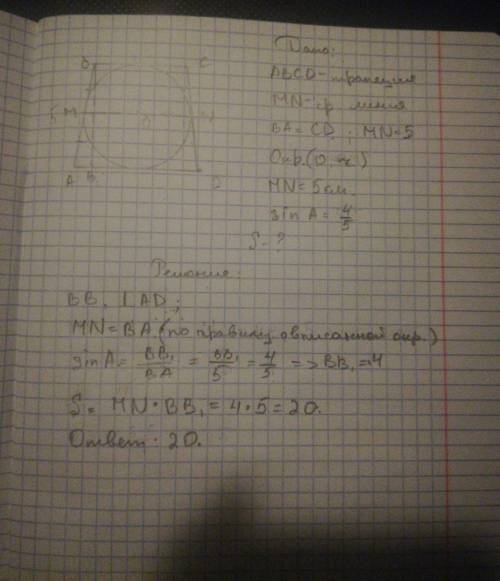 B C
K M O N
A B₁ D
Дано:
ABCD - трапеция
MN - ср. линия
BA = CD ; MN = 5
Окр. (O, r)
MN = 5 см.
sin A = 4/5
S - ?
Решение:
BB₁ ⊥ AD;
MN = BA (по правилу о вписанной окр.)
sin A = BB₁/BA = BB₁/5 = 4/5 => BB₁ = 4
S = MN · BB₁ = 4 · 5 = 20.
Ответ · 20.